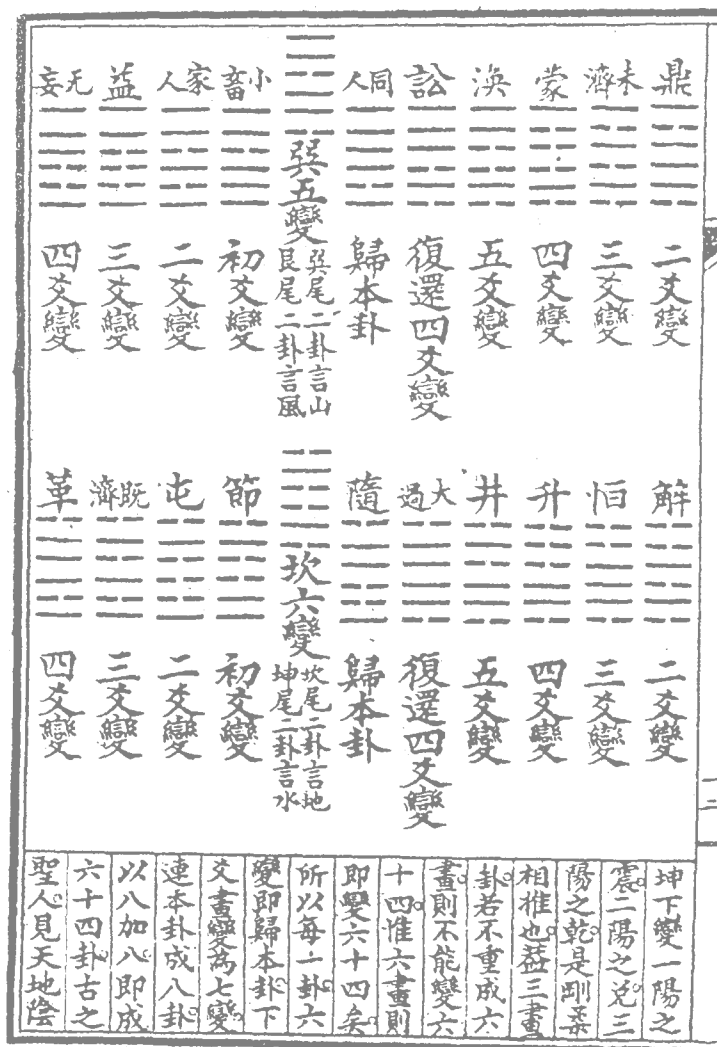 鼎 二爻變
未濟 三爻變
蒙 四爻變
渙 五爻變
訟 復還四爻變
同人 歸本卦
巽五變 巽尾二卦言山 艮尾二卦言風
小畜 初爻變
家人 二爻變
益 三爻變
无妄 四爻變
解 二爻變
恒 三爻變
升 四爻變
井 五爻變
大過 復還四爻變
隨 歸本卦
坎六變 坎尾二卦言地 坤尾二卦言水
節 初爻變
屯 二爻變
既濟 三爻變
革 四爻變
坤下變一陽之
震二陽之兌三
陽之乾是剛柔
相推也葢三畫
卦若不重成六
畫則不能變六
十四惟六畫則
即變六十四矣
所以每一卦六
變即歸本卦下
爻畫變為七變
連本卦成八卦
以八加八即成
六十四卦古之
聖人見天地陰